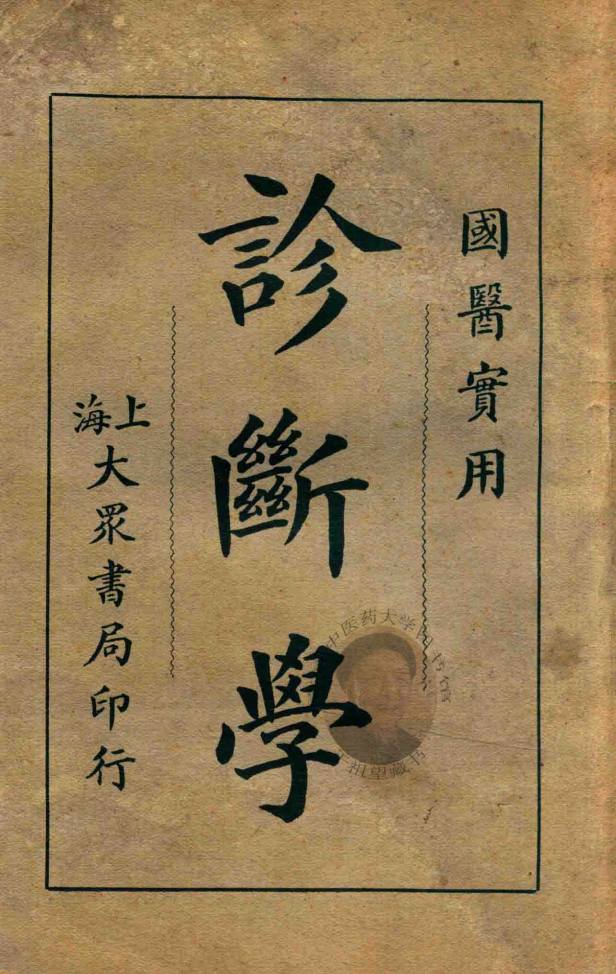 國醫實用
診斷學
上海
大眾書局印行
中医药大学图书馆
祖望藏书